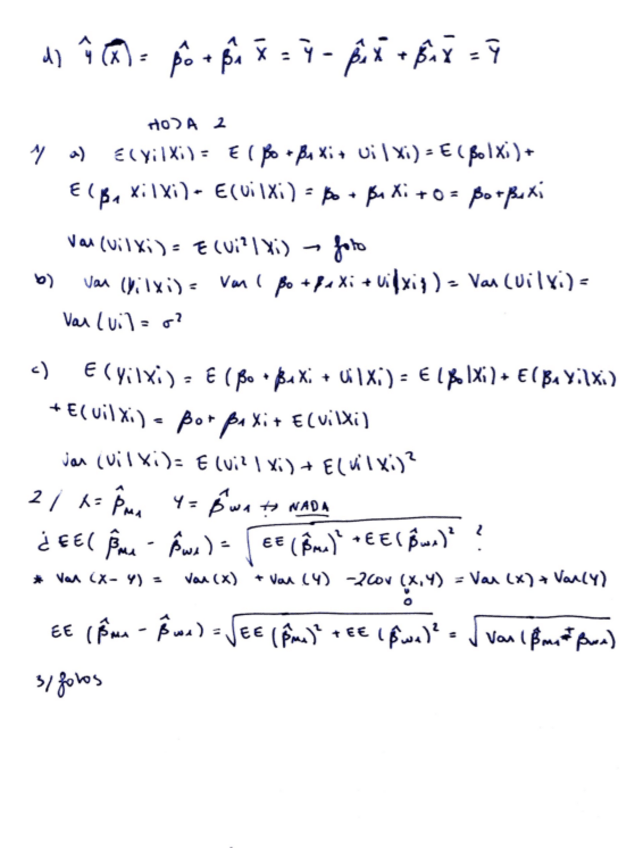 d) ŷ(x̄) = β̂0 + β̂1 x̄ = ȳ - β̂1 x̄ + β̂1 x̄ = ȳ
HOJA 2
1/ a) E(yi|xi) = E(β0 + β1 xi + ui|xi) = E(β0|xi) +
E(β1 xi|xi) - E(ui|xi) = β0 + β1 xi + 0 = β0 + β1 xi
Var(ui|xi) = E(ui²|xi) → foto
b) Var(yi|xi) = Var(β0 + β1 xi + ui|xi) = Var(ui|xi) =
Var(ui) = σ²
c) E(yi|xi) = E(β0 + β1 xi + ui|xi) = E(β0|xi) + E(β1 xi|xi)
+ E(ui|xi) = β0 + β1 xi + E(ui|xi)
Var(ui|xi) = E(ui²|xi) + E(ui|xi)²
2/ X = β̂M1 Y = β̂W1 ↔ NADA
¿EE(β̂M1 - β̂W1) = √(EE(β̂M1)² + EE(β̂W1)²) ?
* Var(X-Y) = Var(X) + Var(Y) - 2Cov(X,Y) = Var(X) + Var(Y)
0
EE(β̂M1 - β̂W1) = √(EE(β̂M1)² + EE(β̂W1)²) = √(Var(β̂M1 ± β̂W1))
3/ fotos